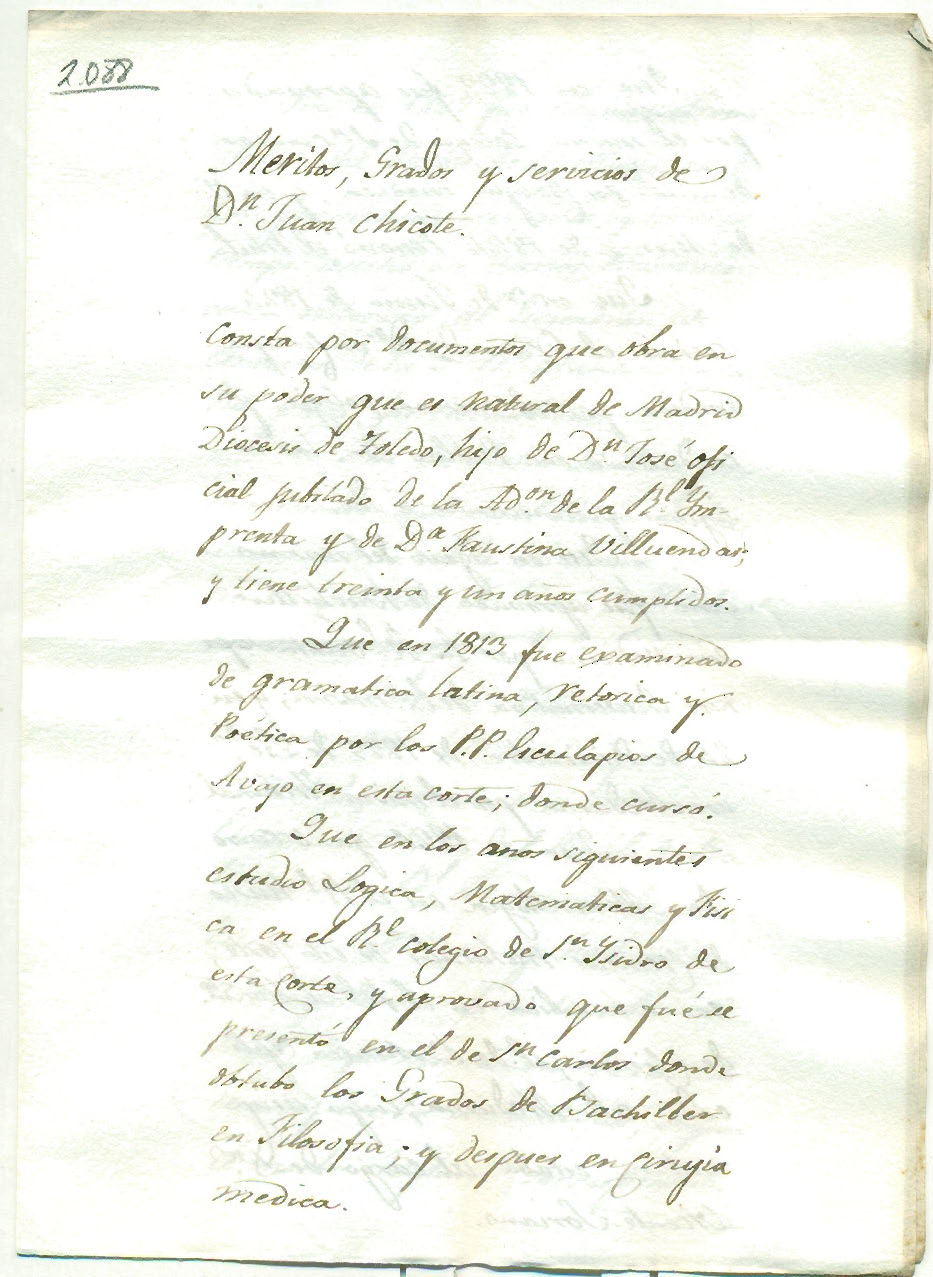 2.088
Meritos, Grados y servicios de
Dn. Juan Chicote.
Consta por documentos que obra en
su poder que es natural de Madrid
Diocesis de Toledo, hijo de Dn. José ofi
cial jubilado de la Adon. de la Rl. Ym-
prenta y de Da. Faustina Villuendas;
y tiene treinta y un años cumplidos.
Que en 1813 fue examinado
de gramatica latina, retorica y
Poética por los P.P. Esculapios de
Avajo en esta corte; donde cursó.
Que en los años siguientes
estudio Logica, Matematicas y Fisi
ca en el Rl. colegio de Sn. Ysidro de
esta Corte, y aprovado que fué se
presentó en el de Sn. Carlos donde
obtubo los Grados de Bachiller
en Filosofia; y despues en Cirugia
medica.